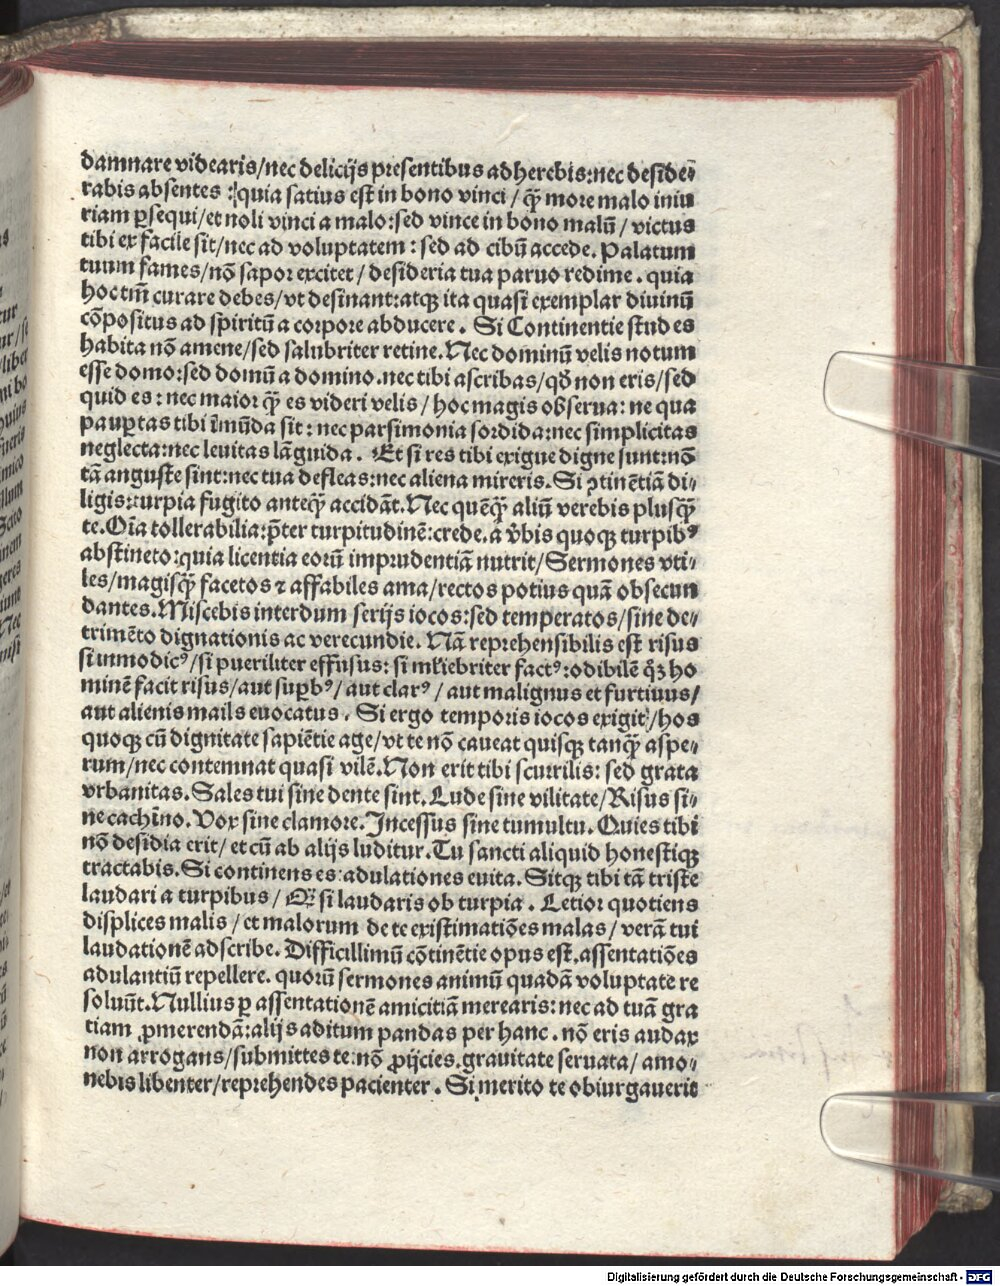 damnare videaris/nec delicijs presentibus adherebis:nec deside⸗
rabis absentes :quia satius est in bono vinci / qꝫ̃ more malo iniu
riam ꝑsequi/et noli vinci a malo:sed vince in bono malū / victus
tibi ex facile sit/nec ad voluptatem : sed ad cibū accede. Palatum
tuum fames/nō sapor excitet / desideria tua paruo redime . quia
hoc tm̄ curare debes/vt desinant:atqꝫ ita quasi exemplar diuinū
cōpositus ad spiritū a corpore abducere . Si Continentie stud es
habita nō amene/sed salubriter retine. Nec dominū velis notum
esse domo:sed domū a domino.nec tibi ascribas/qđ non eris/sed
quid es : nec maior qꝫ̃ es videri velis / hoc magis obserua: ne qua
pauꝑtas tibi īmūda sit : nec parsimonia sordida:nec simplicitas
neglecta:nec leuitas lāguida . Et si res tibi exigue digne sunt:nō
tā anguste sint:nec tua defleas:nec aliena mireris. Si ꝯtinētiā di⸗
ligis:turpia fugito anteqꝫ̃ accidāt. Nec quēqꝫ̃ aliū verebis plusqꝫ̃
te. Oīa tollerabilia:p̄ter turpitudinē:crede. a v̄bis quoqꝫ turpibꝰ
abstineto:quia licentia eorū imprudentiā nutrit/Sermones vti⸗
les/magisqꝫ̃ facetos ⁊ affabiles ama/rectos potius quā obsecun
dantes. Miscebis interdum serijs iocos:sed temperatos/sine de⸗
trimēto dignationis ac verecundie. Nā reprehensibilis est risus
si inmodicꝰ/si pueriliter effusus: si mliebriter factꝰ:odibilē qꝫ ho
minē facit risus/aut suꝑbꝰ/ aut clarꝰ / aut malignus et furtiuus/
aut alienis mails euocatus . Si ergo temporis iocos exigit/hos
quoqꝫ cū dignitate sapiētie age/vt te nō caueat quisqꝫ tanqꝫ̃ aspe⸗
rum/nec contemnat quasi vilē. Non erit tibi scurrilis: sed grata
vrbanitas. Sales tui sine dente sint. Lude sine vilitate/Risus si⸗
ne cachīno. Vox sine clamore. Incessus sine tumultu. Quies tibi
nō desidia erit/ et cū ab alijs luditur. Tu sancti aliquid honestiqꝫ
tractabis. Si continens es:adulationes euita. Sitqꝫ tibi tā triste
laudari a turpibus / si laudaris ob turpia . Letior quotiens
displices malis / et malorum de te existimatiōes malas / verā tui
laudationē adscribe. Difficillimū cōtinētie opus est.assentatiōes
adulantiū repellere. quorū sermones animū quadā voluptate re
soluūt. Nullius ꝑ assentationē amicitiā merearis: nec ad tuā gra
tiam ꝓmerendā:alijs aditum pandas per hanc . nō eris audax
non arrogans/submittes te:nō ꝓijcies.grauitate seruata/ amo⸗
nebis libenter/reprehendes pacienter . Si merito te obiurgauerit
Digitalisierung gefördert durch die Deutsche Forschungsgemeinschaft - DFG